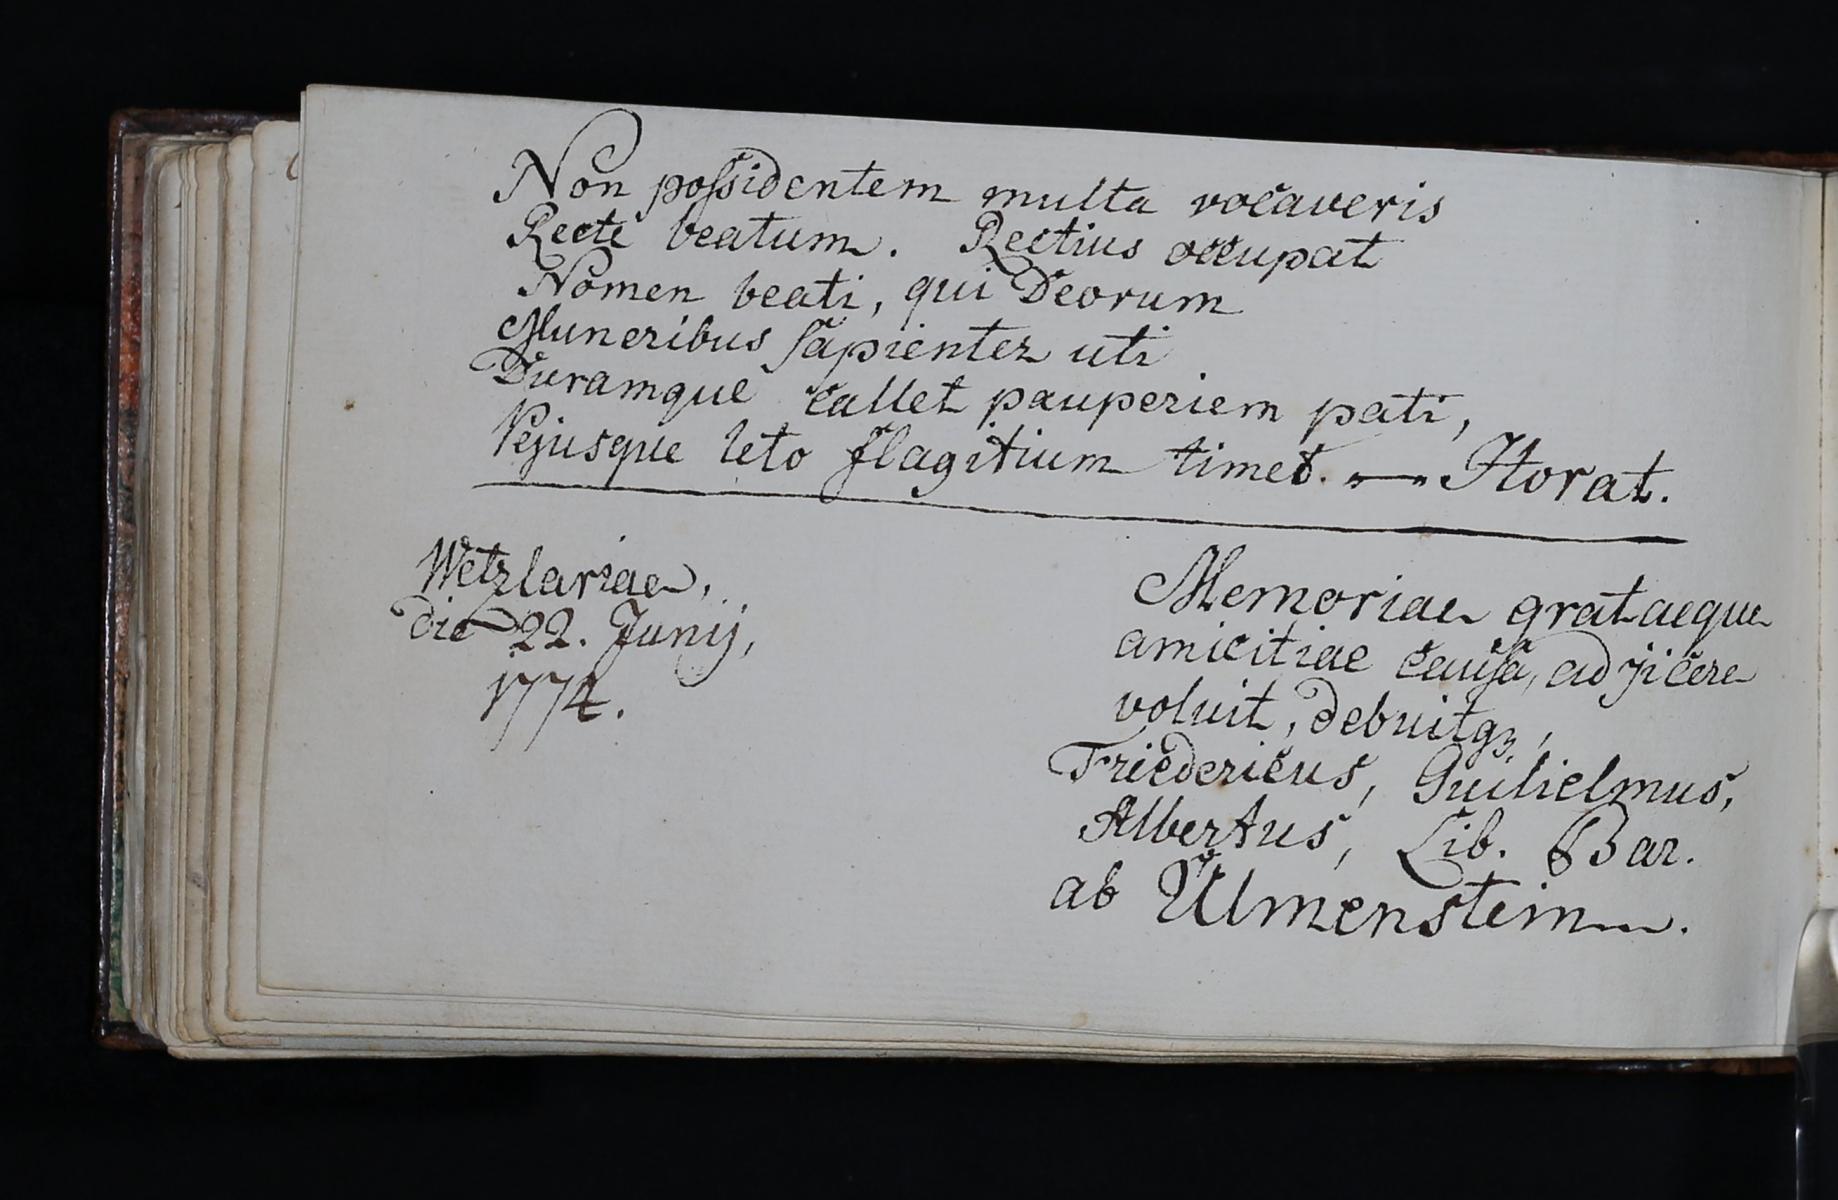 Non possidentem multa vocaveris
Recte beatum. Rectius occupat
Nomen beati, qui Deorum
Muneribus sapienter uti
Duramque callet pauperiem pati,
Pejusque leto flagitium timet. — Horat.
Wetzlariae,
die 22. Junij,
1774.
Memoriae grataeque
amicitiae causa, adjicere
voluit, debuitq3,
Friedericus, Guilielmus,
Albertus, Lib. Bar.
ab Ulmenstein.